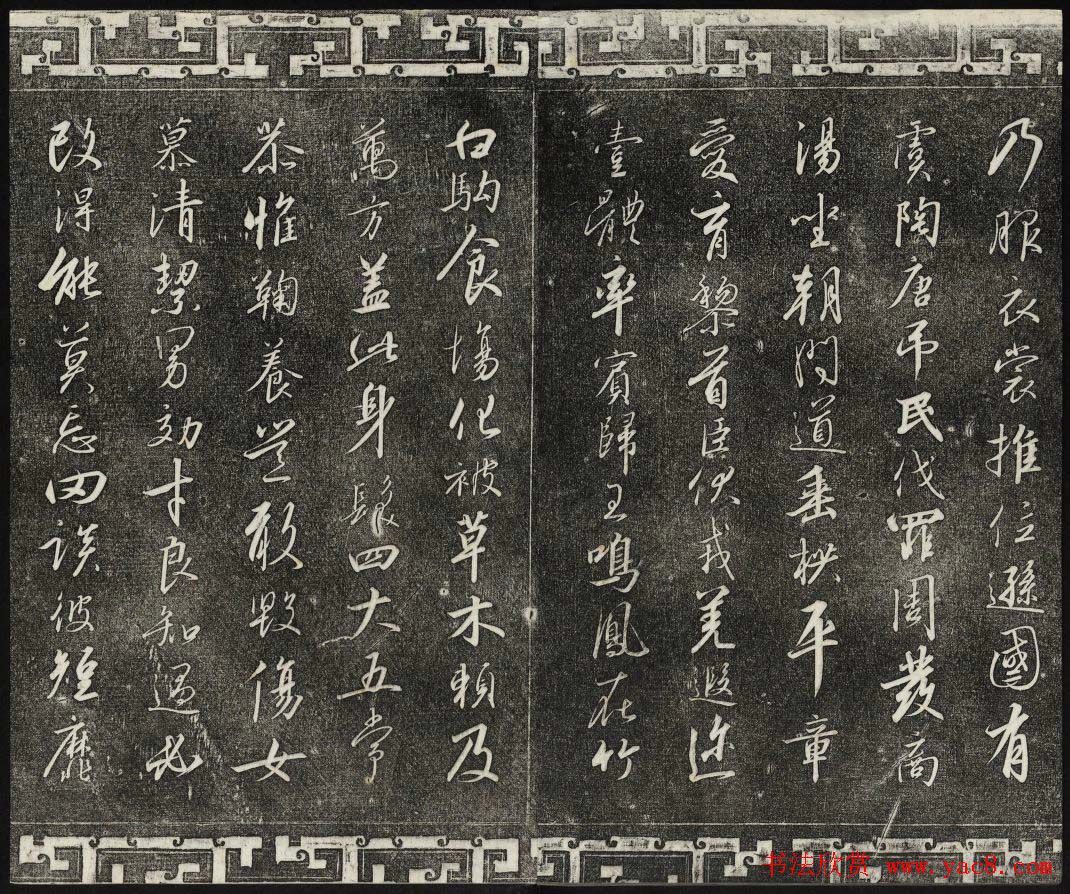 乃服衣裳推位遜國有
虞陶唐吊民伐罪周發商
湯坐朝問道垂拱平章
愛育黎首臣伏戎羌遐迩
壹體率賓歸王鳴鳳在竹
白駒食場化被草木賴及
萬方盖此身髮四大五常
恭惟鞠養豈敢毀傷女
慕清絜男効才良知過必
改得能莫忘罔談彼短靡
书法欣赏 www.yac8.com